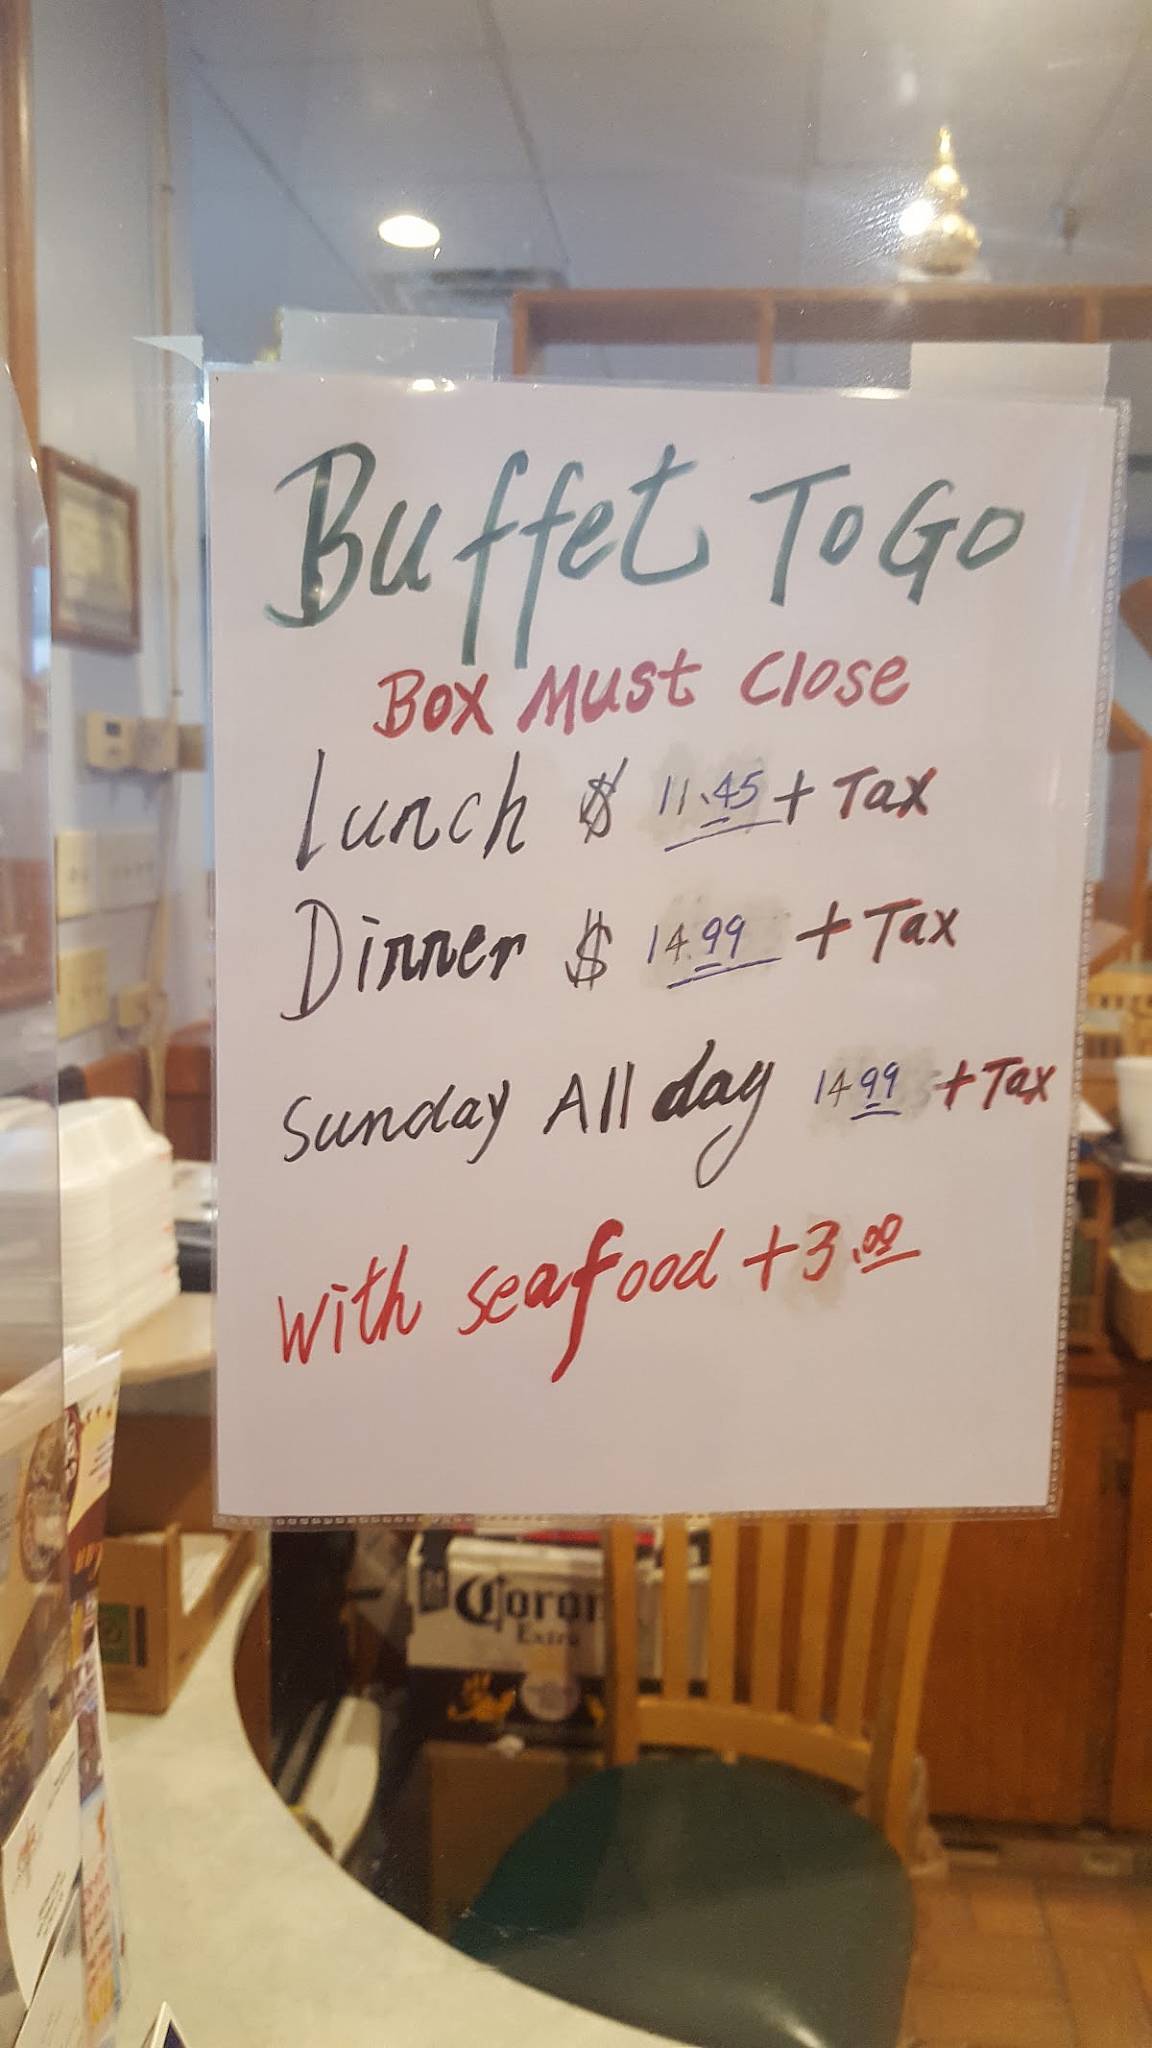 Buffet To Go
Box Must Close
Lunch $ 11.45 + Tax
Dinner $ 14.99 + Tax
Sunday All day 14 99 + Tax
with seafood + 3.00
Extra